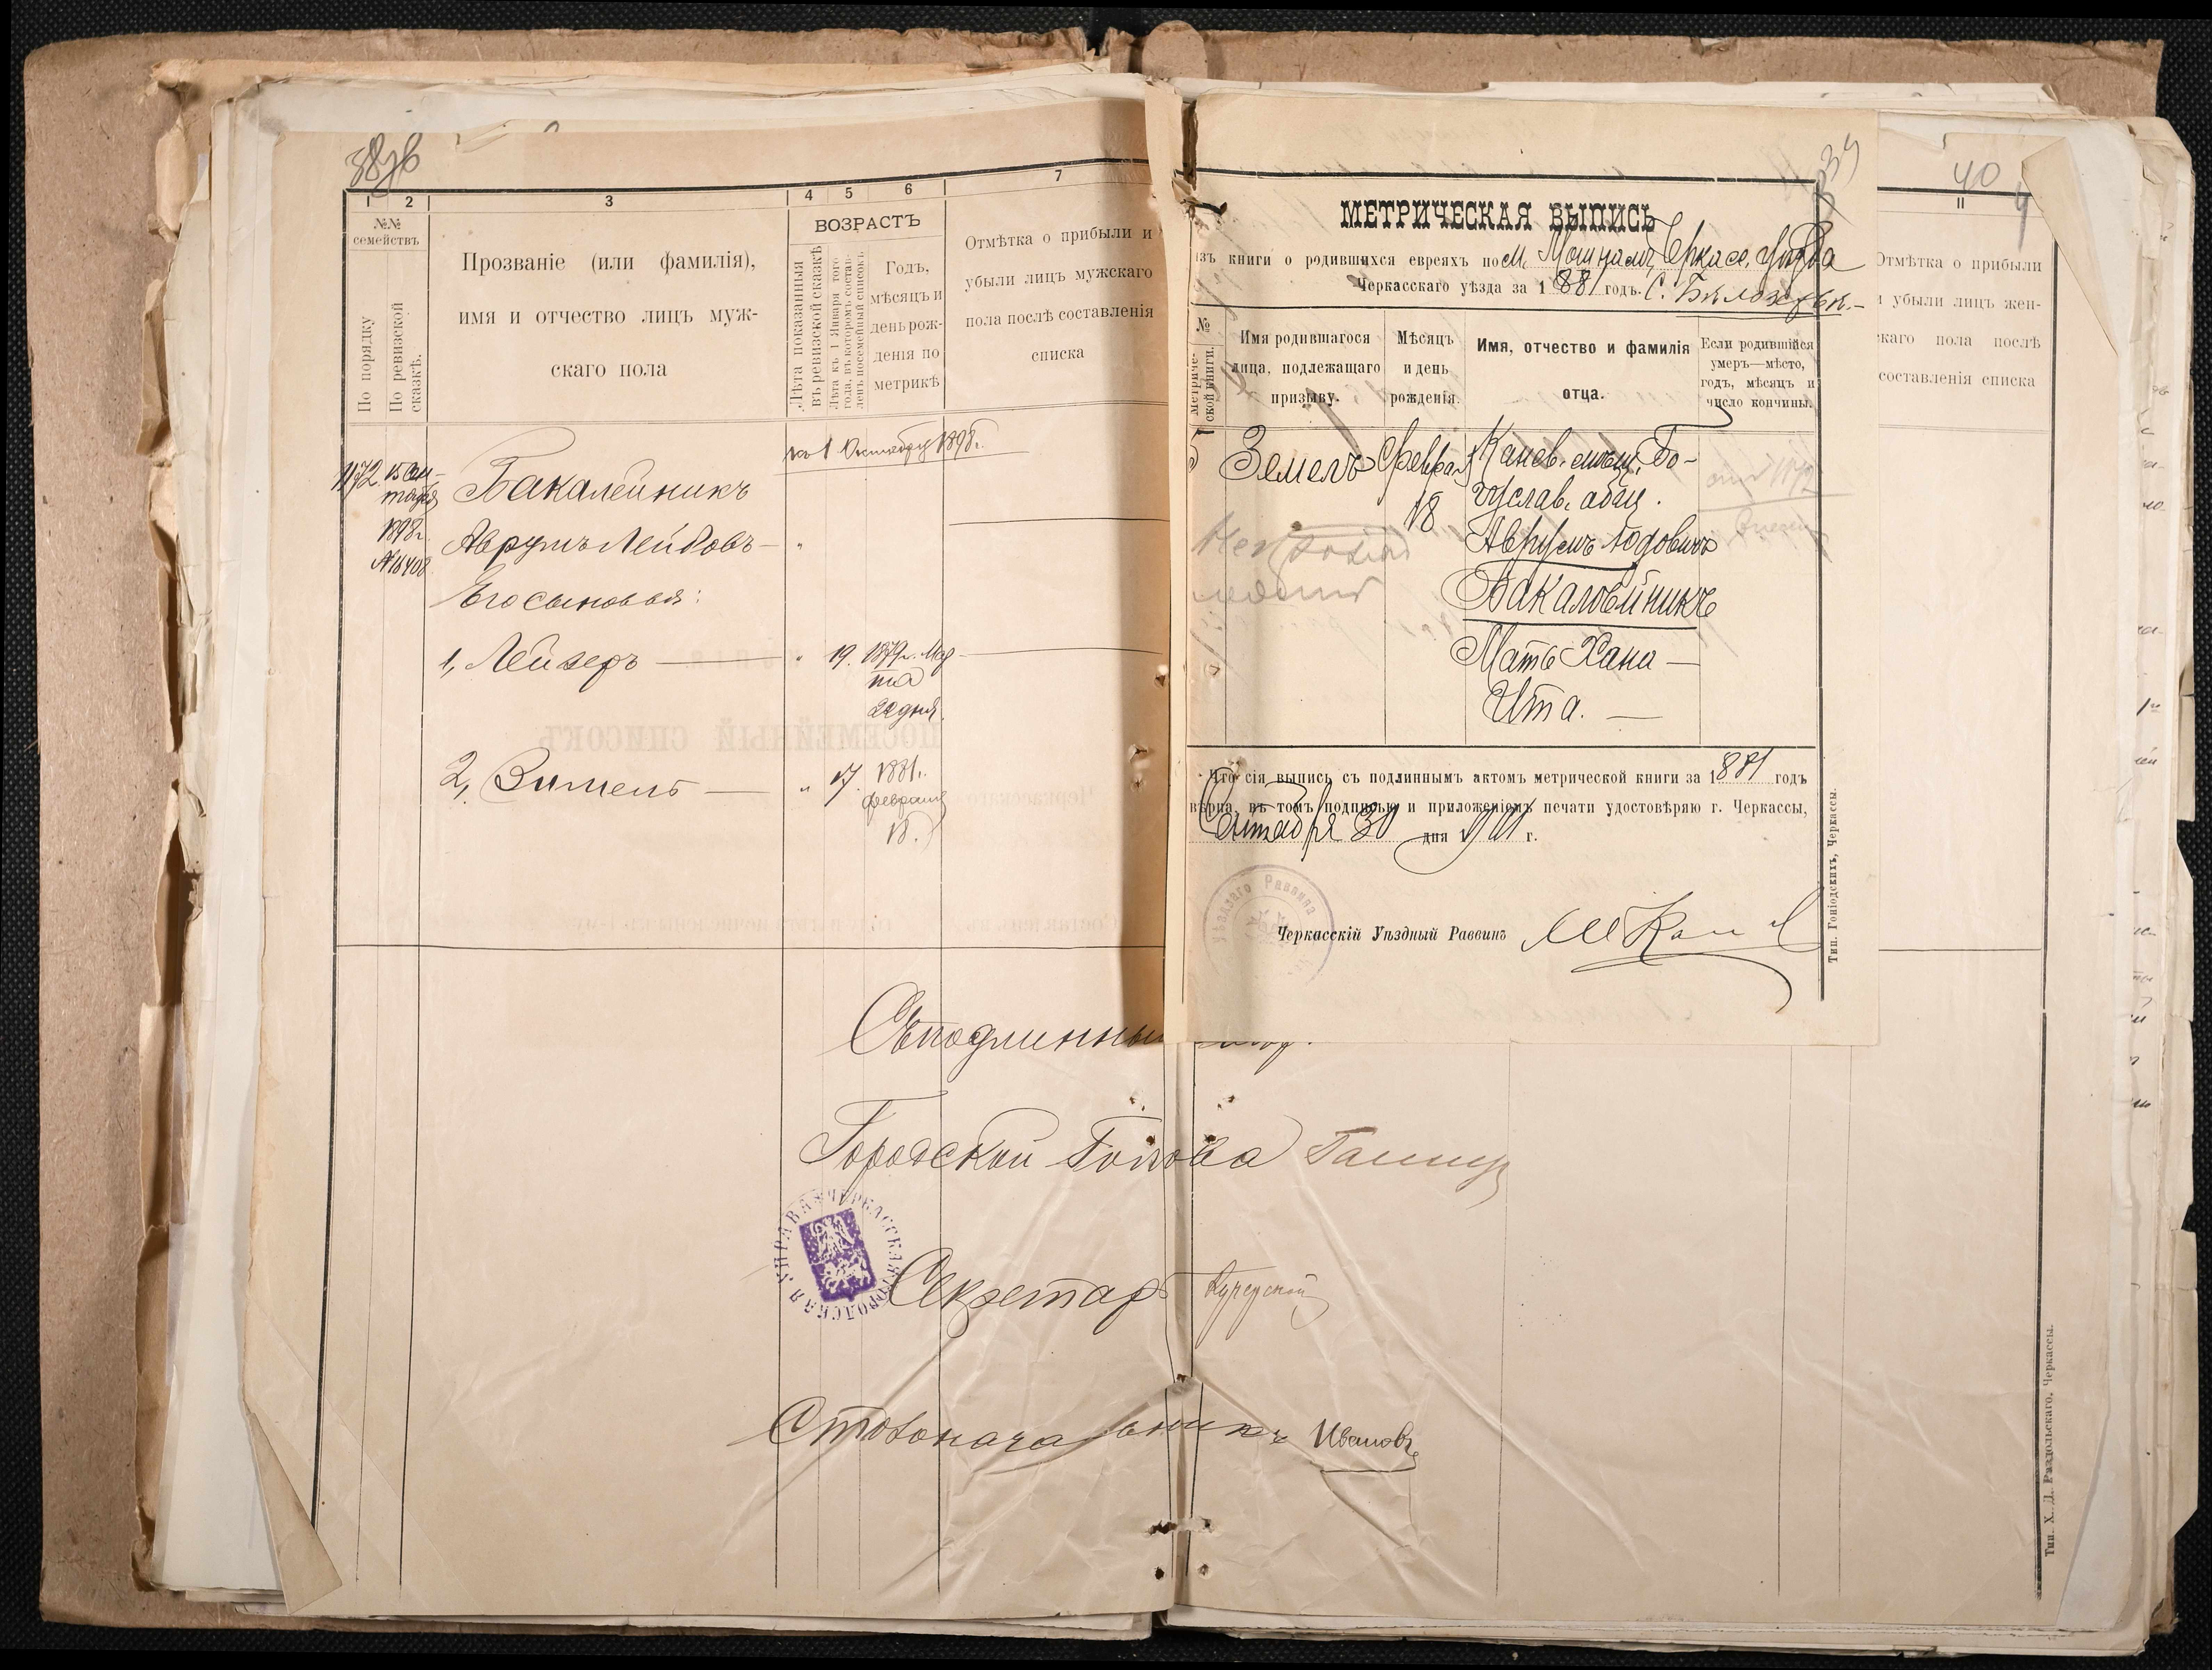 38об
1 2 3 4 5 6 7
№№ семействъ
По порядку
По ревизской сказкѣ.
Прозваніе (или фамилія),
имя и отчество лицъ муж-
скаго пола
ВОЗРАСТЪ
Лѣта показанныя въ ревизской сказкѣ
Лѣта къ 1 Января того года, въ которомъ составленъ посемейный списокъ
Годъ,
мѣсяцъ и
день рож-
денія по
метрикѣ
Отмѣтка о прибыли и
убыли лицъ мужскаго
пола послѣ составленія
списка
къ 1 Октября 1898г.
1172. 15 Сен-
тября
1898г.
№16408
Бакалейникъ
Аврумъ Лейбовъ — "
Его сыновья:
1, Лейзеръ — " 19. 1879г. Мар-
та
22 дня.
2, Зимель — " 17. 1881г.
февраля
18.
Съ подлиннымъ
Городской Голова
ЧЕРКАССКАЯ ГОРОДСКАЯ УПРАВА
Секретарь
Столоначальникъ Ивановъ
39
МЕТРИЧЕСКАЯ ВЫПИСЬ
изъ книги о родившихся евреяхъ по м. Мошнамъ, Черкасс. уѣзда
Черкасскаго уѣзда за 1881 годъ. С. Бѣлозерье.—
№ метриче-
ской книги.
Имя родившагося
лица, подлежащаго
призыву.
Мѣсяцъ
и день
рожденія.
Имя, отчество и фамилія
отца.
Если родившійся
умеръ—мѣсто,
годъ, мѣсяцъ и
число кончины.
5 Земель Феврал
18
Канев. мѣщ. Бо-
гуслав. общ.
Аврумъ
Бакалейникъ
Мать Хана —
Ита. —
Что сія выпись съ подлиннымъ актомъ метрической книги за 1881 годъ
вѣрна, въ томъ подписью и приложеніемъ печати удостовѣряю г. Черкассы,
Сентября 30 дня 1901 г.
Уѣзднаго Раввина
Черкасскій Уѣздный Раввинъ
Тип. Гоніодскихъ, Черкассы.
40
11
Отмѣтка о прибыли
и убыли лицъ жен-
скаго пола послѣ
составленія списка
Тип. Х. Д. Раздольскаго. Черкассы.